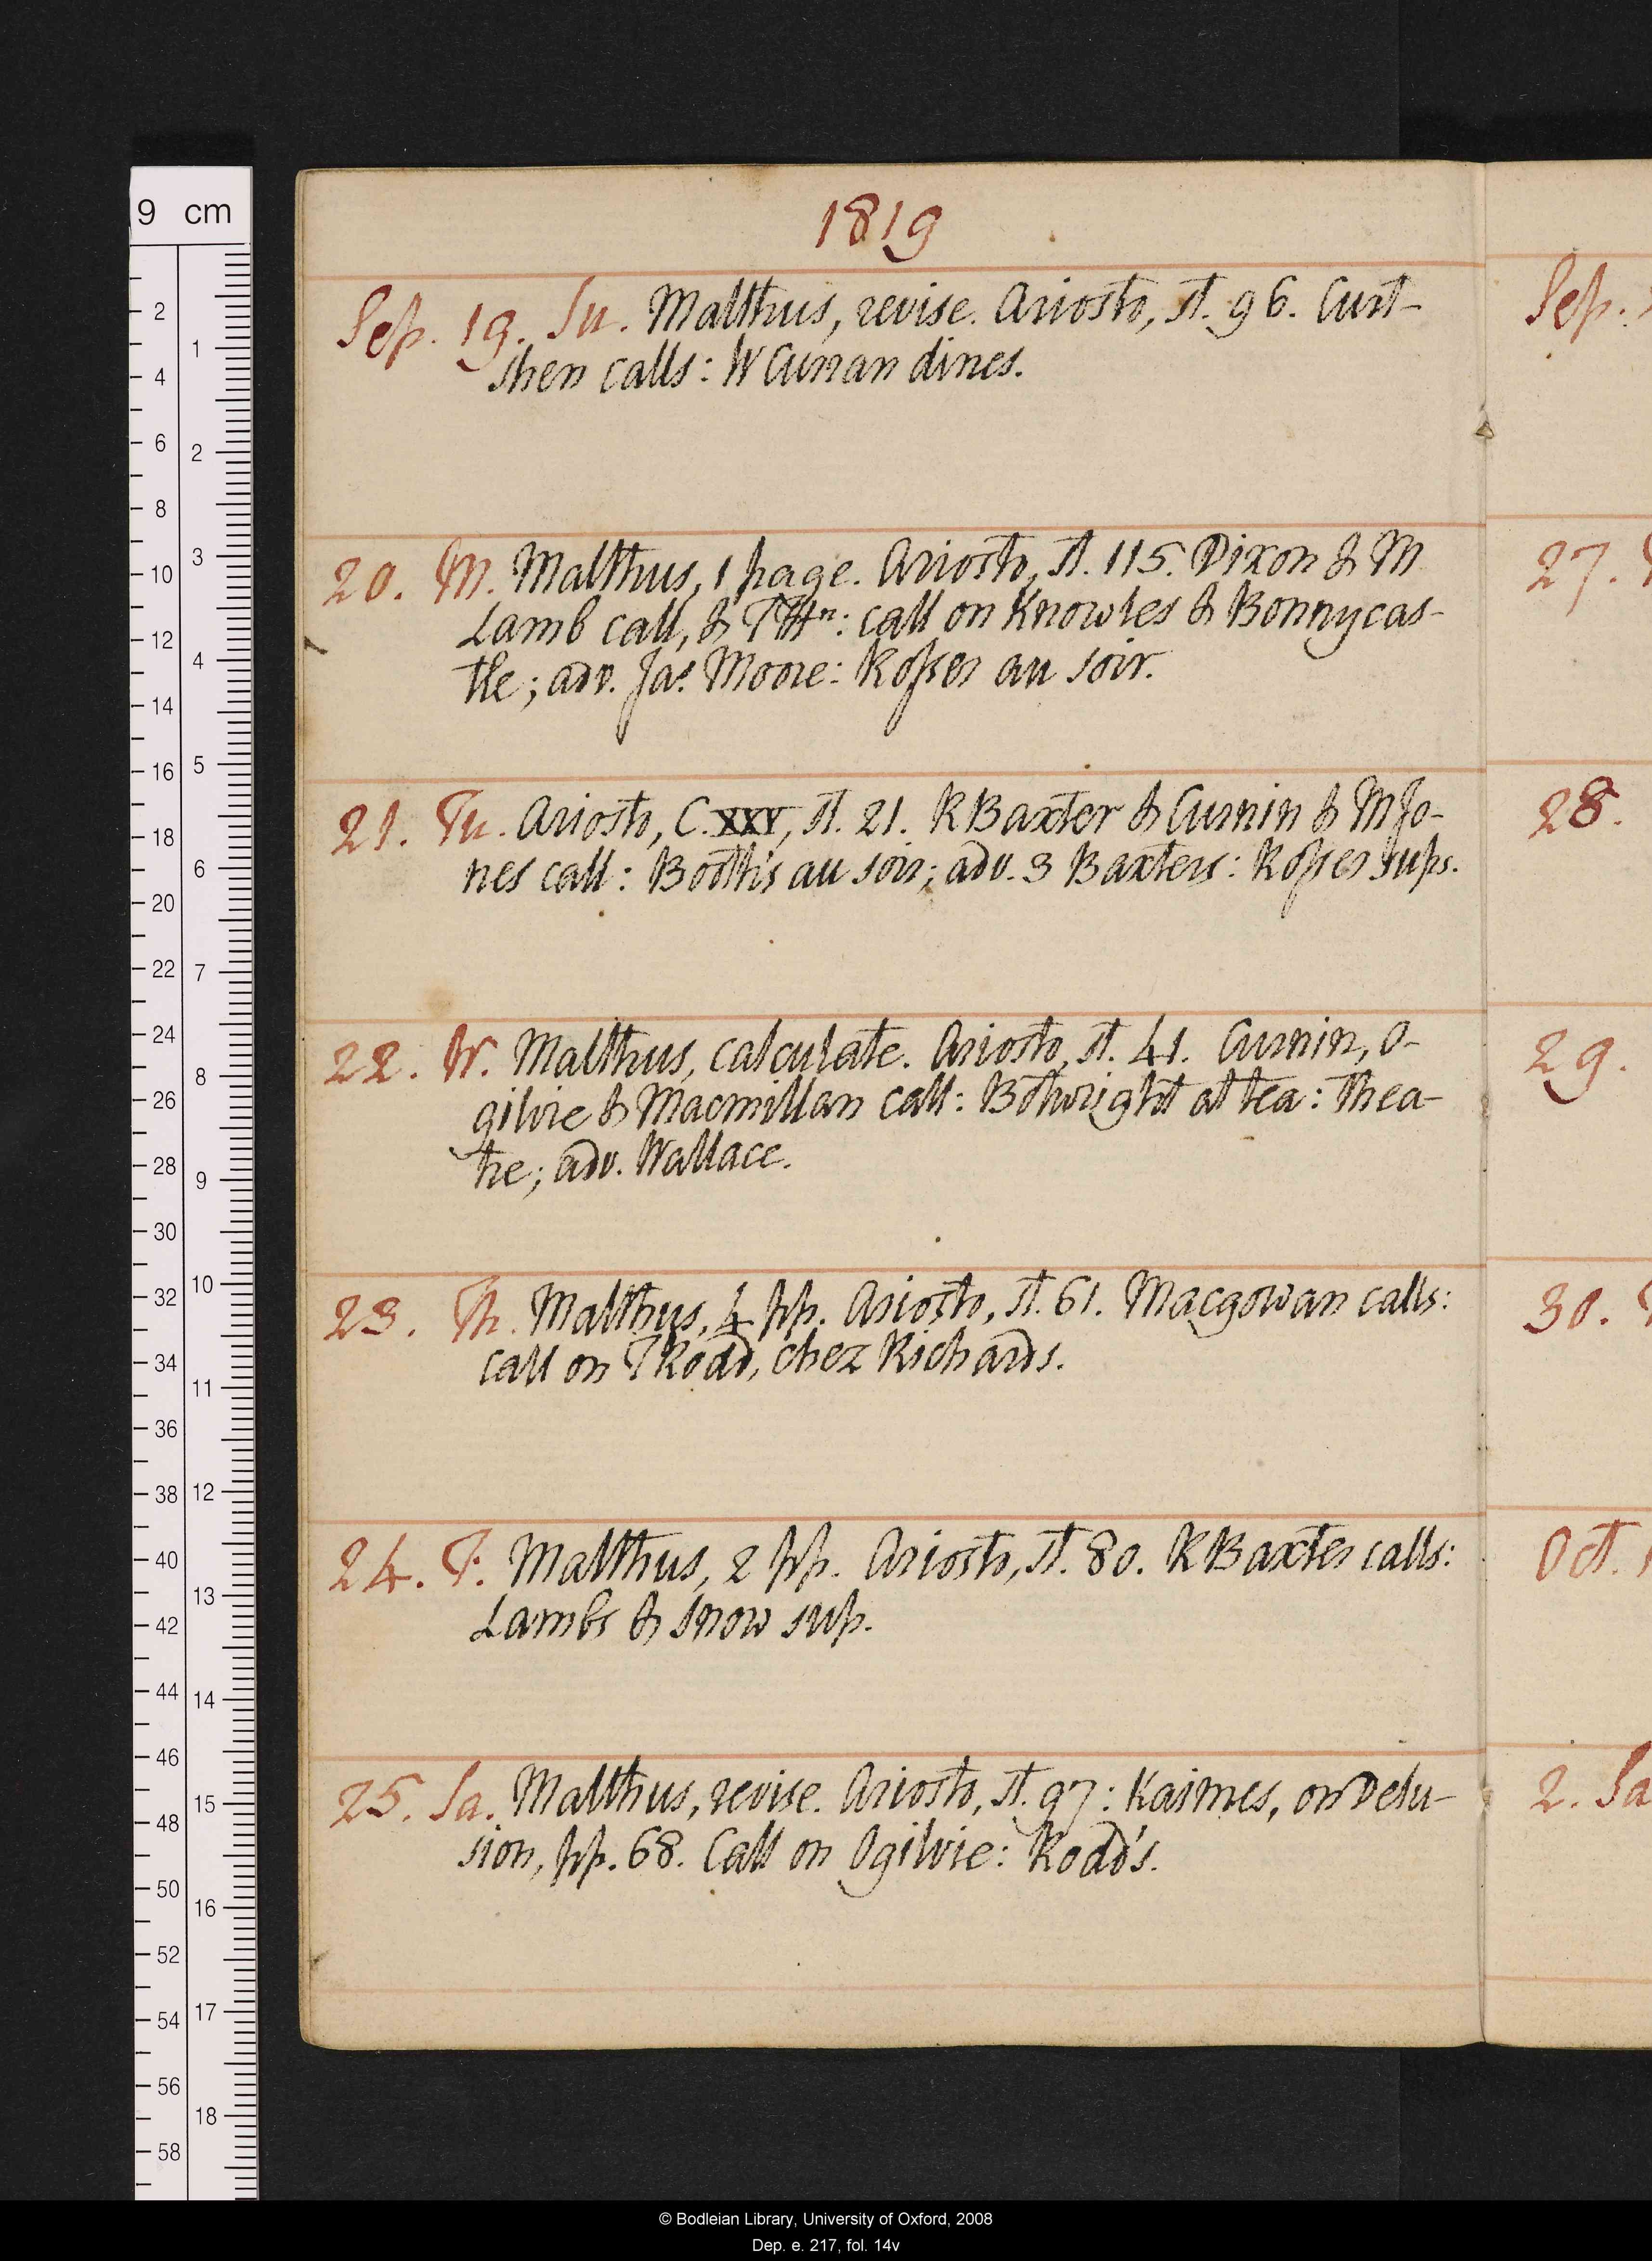 1819
Sep. 19. Su. Malthus, revise. Ariosto, st. 96. Curt-
shen calls: W Curran dines.
20. M. Malthus, 1 page. Ariosto, st. 115. Dixon & M
Lamb call, & THn: call on Knowles & Bonnycas-
tle; adv. Jas Moore: Rosser au soir.
21. Tu. Ariosto, C. XXV, st. 21. R Baxter & Curnin & M Jo-
nes call: Booth's au soir; adv. 3 Baxters: Rosser sups.
22. W. Malthus, calculate. Ariosto, st. 41. Curnin, O-
gilvie & Macmillan call: Bothwright at tea: Thea-
tre; adv. Wallace.
23. Th. Malthus, 4 pp. Ariosto, st. 61. Macgowan calls:
call on T Rodd, chez Richards.
24. F. Malthus, 2 pp. Ariosto, st. 80. R Baxter calls:
Lambs & Snow sup.
25. Sa. Malthus, revise. Ariosto, st. 97: Kaimes, on Delu-
sion, pp. 68. Call on Ogilvie: Rodd's.
Sep.
27.
28.
29.
30.
Oct.
2. Sa
9 cm
2
4
6
8
10
12
14
16
18
20
22
24
26
28
30
32
34
36
38
40
42
44
46
48
50
52
54
56
58
1
2
3
4
5
6
7
8
9
10
11
12
13
14
15
16
17
18
© Bodleian Library, University of Oxford, 2008
Dep. e. 217, fol. 14v